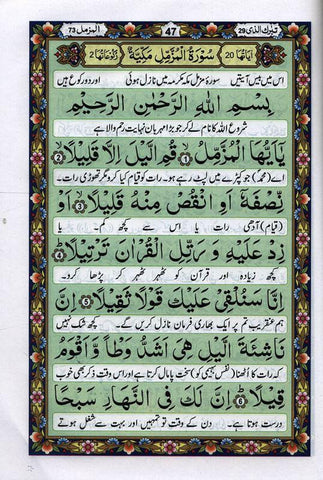 تبٰرک الذی 29 47 المزمل 73
اٰیَاتُهَا 20 سُوْرَةُ الْمُزَّمِّلِ مَكِّيَّةٌ رُكُوْعَاتُهَا 2
اس میں بیس آیتیں سورۃ مزمل مکہ مکرمہ میں نازل ہوئی اور دو رکوع ہیں
بِسْمِ اللّٰهِ الرَّحْمٰنِ الرَّحِيْمِ
شروع اللہ کا نام لے کر جو بڑا مہربان نہایت رحم والا ہے
يٰۤاَيُّهَا الْمُزَّمِّلُ ۙ 1 قُمِ الَّيْلَ اِلَّا قَلِيْلًا ۙ 2
اے (محمدؐ) جو کپڑے میں لپٹ رہے ہو۔ رات کو قیام کیا کرو مگر تھوڑی رات۔
نِّصْفَهٗۤ اَوِ انْقُصْ مِنْهُ قَلِيْلًا ۙ 3 اَوْ
(قیام) آدھی رات یا اس سے کچھ کم۔ یا
زِدْ عَلَيْهِ وَ رَتِّلِ الْقُرْاٰنَ تَرْتِيْلًا ؕ 4
کچھ زیادہ اور قرآن کو ٹھہر ٹھہر کر پڑھا کرو۔
اِنَّا سَنُلْقِيْ عَلَيْكَ قَوْلًا ثَقِيْلًا 5 اِنَّ
ہم عنقریب تم پر ایک بھاری فرمان نازل کریں گے۔ کچھ شک نہیں
نَاشِئَةَ الَّيْلِ هِيَ اَشَدُّ وَطْاً وَّ اَقْوَمُ
کہ رات کا اٹھنا (نفس بہیمی کو) سخت پامال کرتا ہے اور اس وقت ذکر بھی خوب
قِيْلًا ؕ 6 اِنَّ لَكَ فِي النَّهَارِ سَبْحًا
درست ہوتا ہے۔ دن کے وقت تو تمہیں اور بہت سے شغل ہوتے